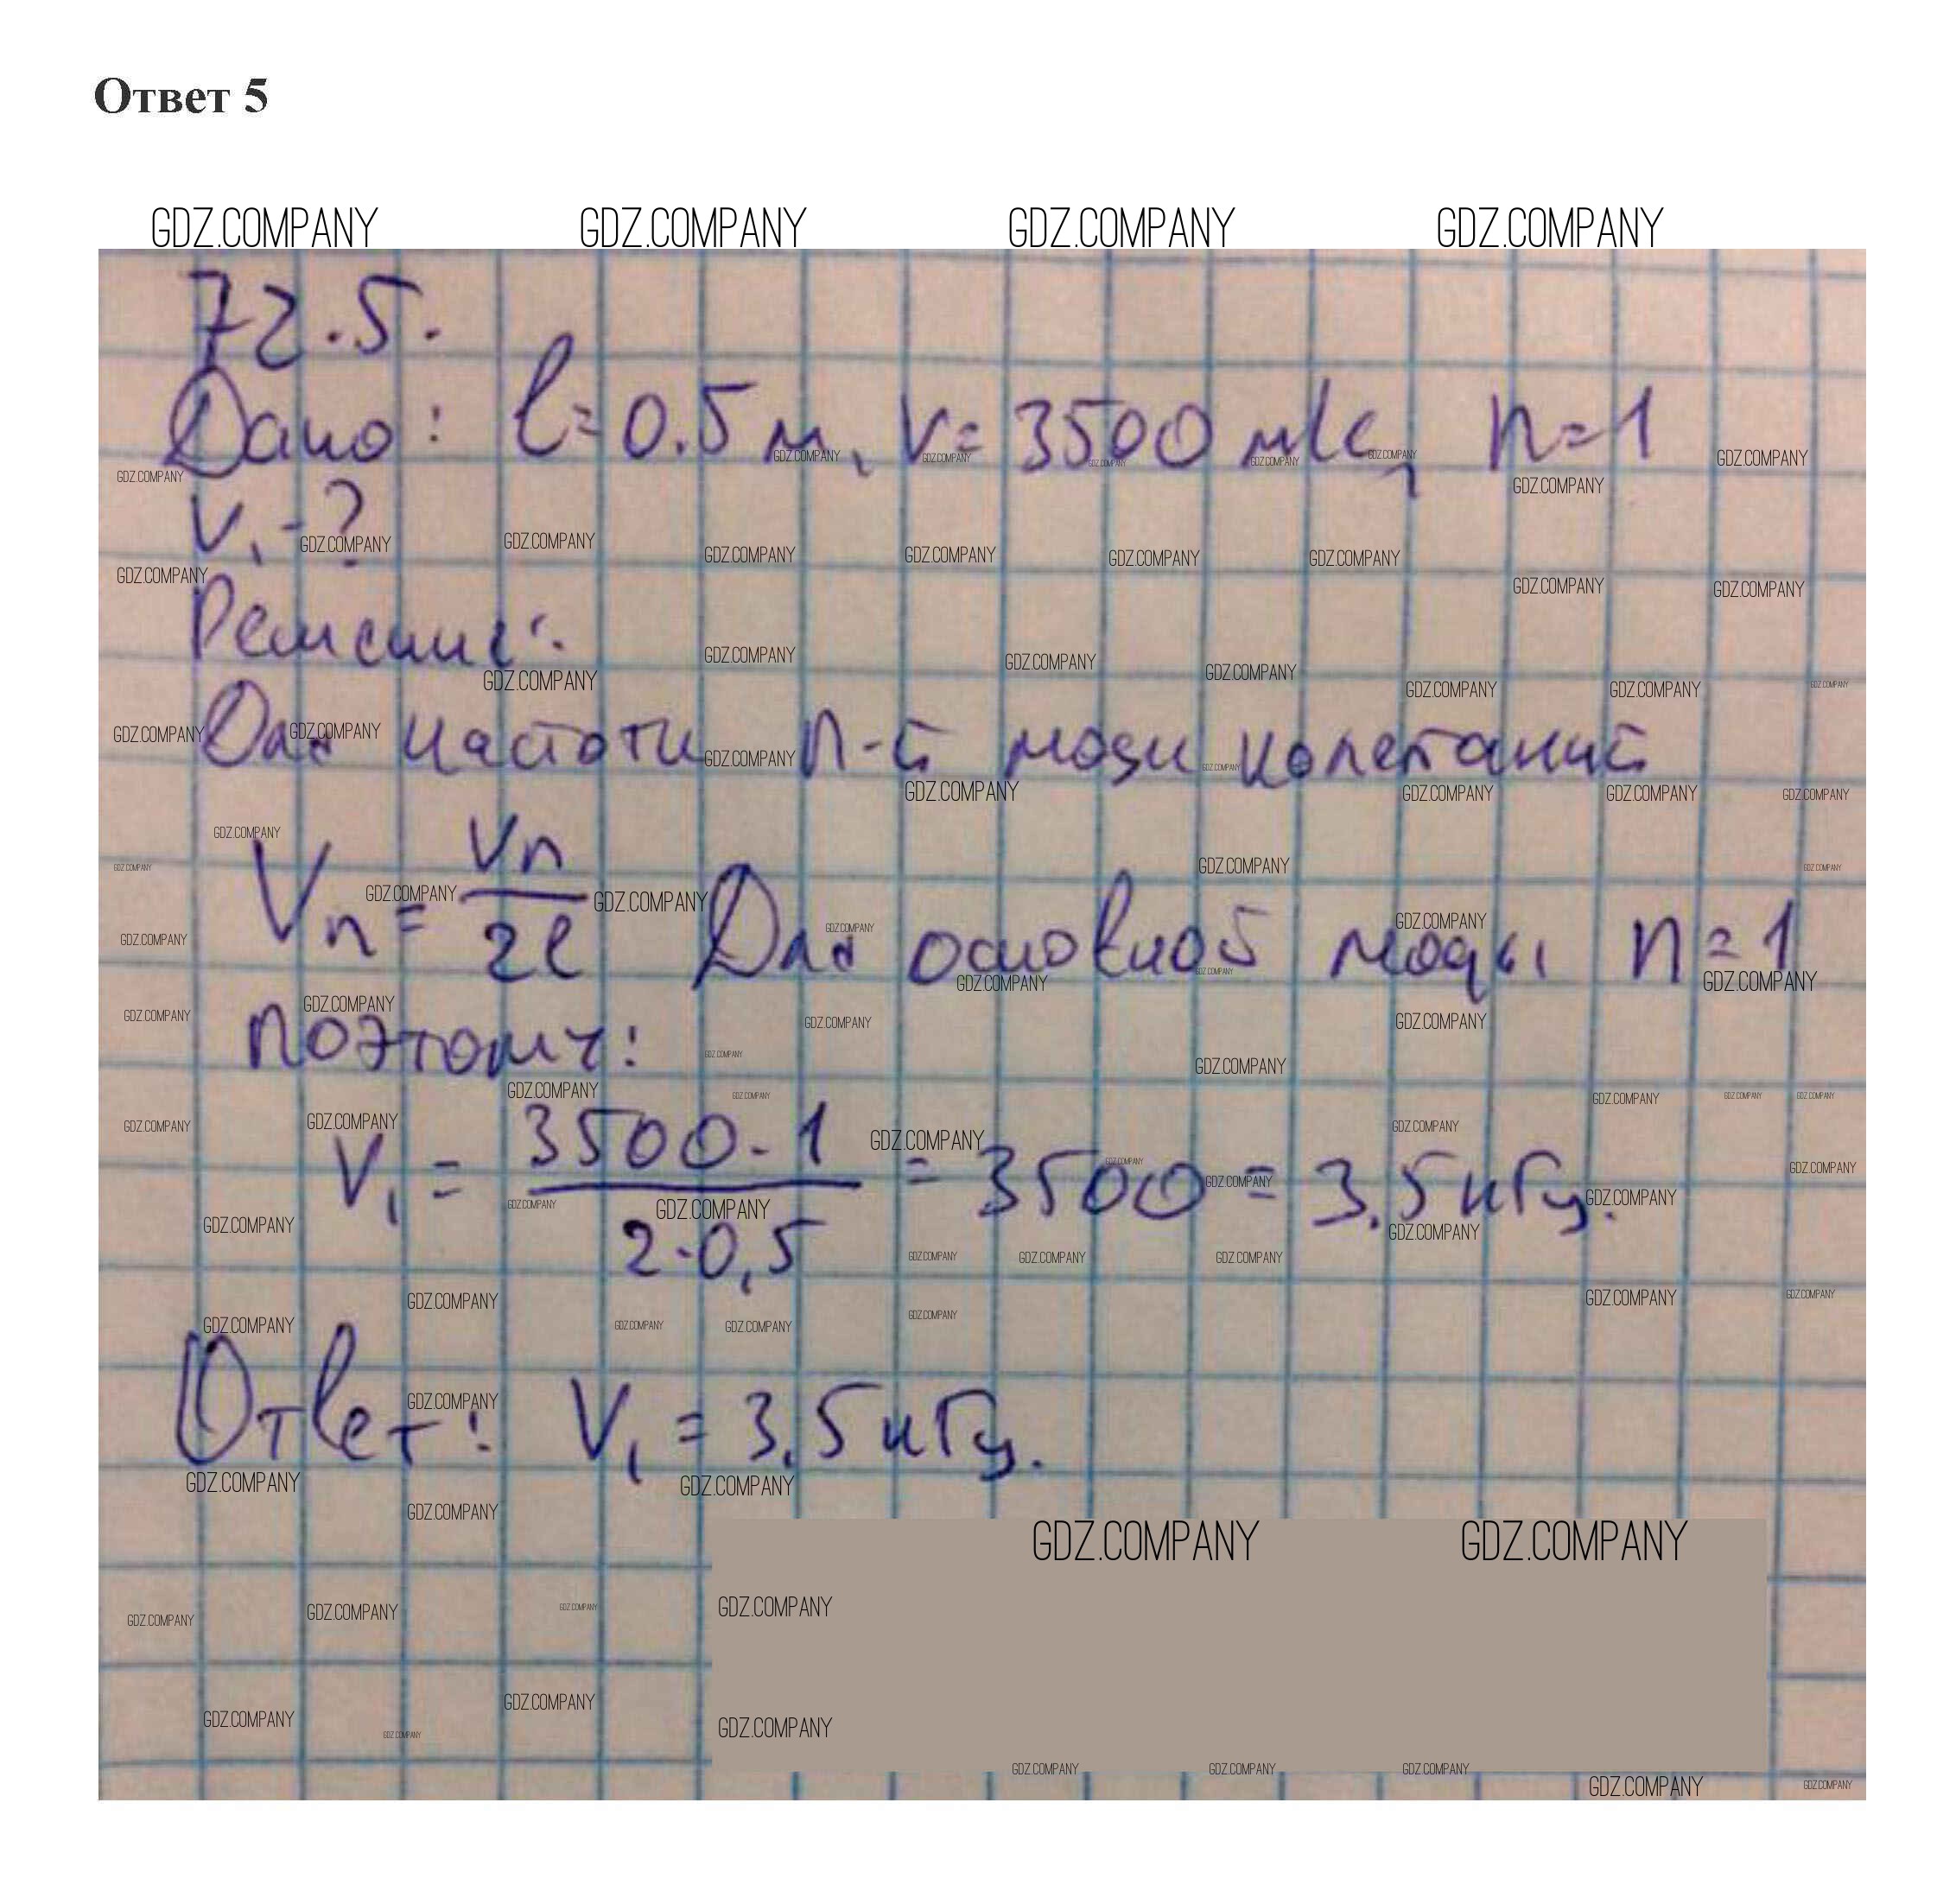 Ответ 5
GDZ.COMPANY GDZ.COMPANY GDZ.COMPANY GDZ.COMPANY
72.5.
Дано: l=0.5м, v=3500 м/с, n=1
ν₁-?
Решение:
Для частоты n-й моды колебаний
νₙ = vn/2l Для основной моды n=1
поэтому:
ν₁ = 3500·1/2·0,5 = 3500 = 3,5 кГц.
Ответ: ν₁ = 3,5 кГц.
GDZ.COMPANY GDZ.COMPANY
GDZ.COMPANY
GDZ.COMPANY